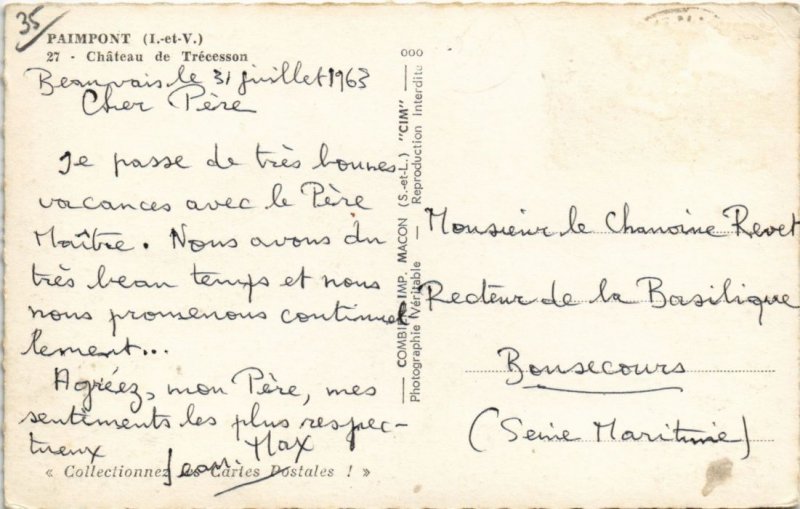 35
PAIMPONT (I.-et-V.)
27 - Château de Trécesson
Beauvais le 31 juillet 1963
Cher Père
Je passe de très bonnes
vacances avec le Père
Maître. Nous avons du
très beau temps et nous
nous promenons continuel
lement...
Agréez, mon Père, mes
sentiments les plus respec-
tueux
Jean Max
« Collectionnez les Cartes Postales ! »
000
COMBIER IMP. MACON (S.-et-L.) "CIM"
Photographie Véritable — Reproduction interdite
Monsieur le Chanoine Revet
Recteur de la Basilique
Bonsecours
(Seine Maritime)